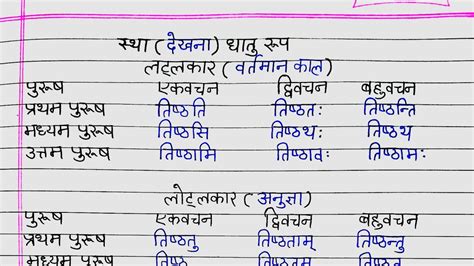 स्था ( देखना ) धातु रूप
लट्लकार ( वर्तमान काल )
पुरूष एकवचन द्विवचन बहुवचन
प्रथम पुरूष तिष्ठति तिष्ठतः तिष्ठन्ति
मध्यम पुरूष तिष्ठसि तिष्ठथः तिष्ठथ
उत्तम पुरूष तिष्ठामि तिष्ठावः तिष्ठामः
लोट्लकार ( अनुज्ञा )
पुरूष एकवचन द्विवचन बहुवचन
प्रथम पुरूष तिष्ठतु तिष्ठताम् तिष्ठन्तु
मध्यम पुरूष तिष्ठ तिष्ठतम तिष्ठत